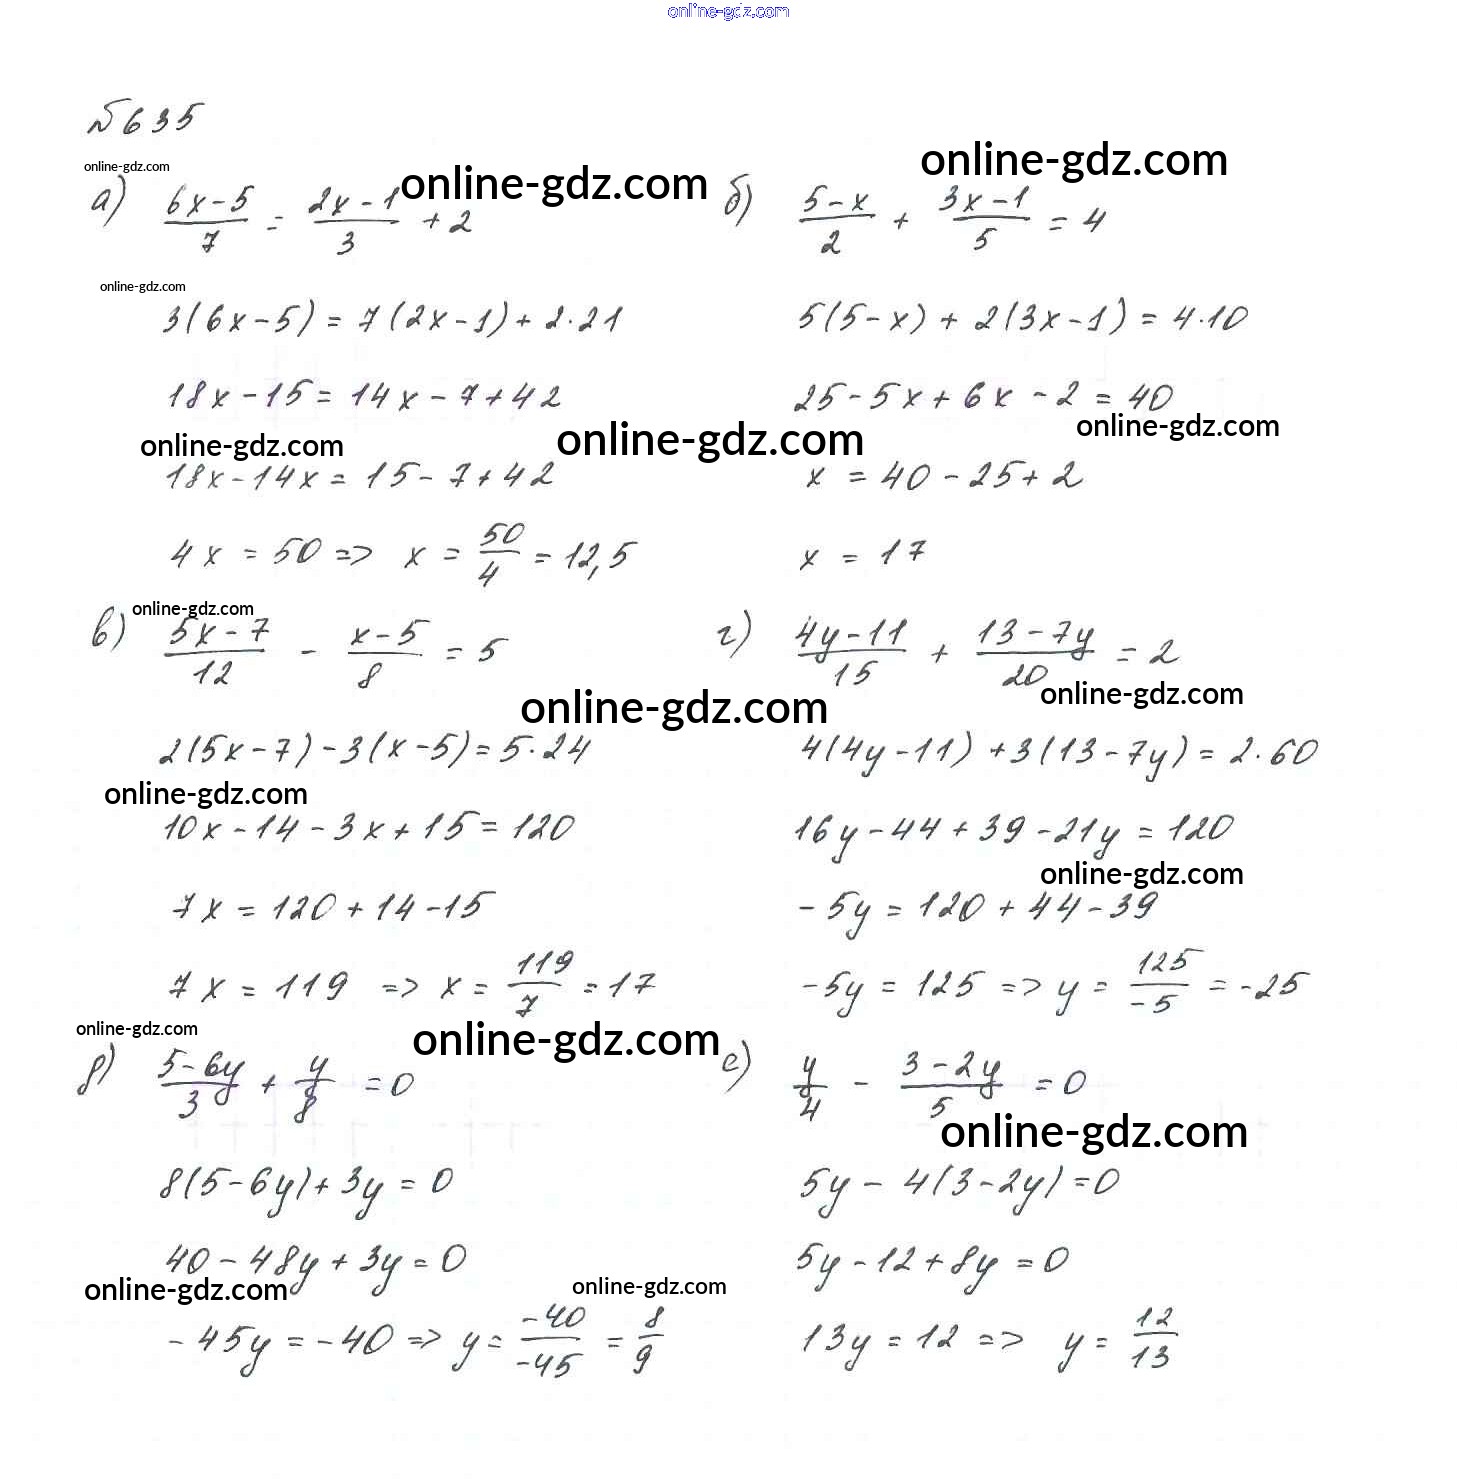 online-gdz.com
№635
online-gdz.com
online-gdz.com
online-gdz.com
а) (6x-5)/7 = (2x-1)/3 + 2
б) (5-x)/2 + (3x-1)/5 = 4
online-gdz.com
3(6x-5) = 7(2x-1) + 2·21
5(5-x) + 2(3x-1) = 4·10
18x-15 = 14x-7+42
25-5x+6x-2 = 40
online-gdz.com
online-gdz.com
online-gdz.com
18x-14x = 15-7+42
x = 40-25+2
4x = 50 => x = 50/4 = 12,5
x = 17
online-gdz.com
в) (5x-7)/12 - (x-5)/8 = 5
г) (4y-11)/15 + (13-7y)/20 = 2
online-gdz.com
online-gdz.com
2(5x-7)-3(x-5) = 5·24
4(4y-11)+3(13-7y) = 2·60
online-gdz.com
10x-14-3x+15 = 120
16y-44+39-21y = 120
online-gdz.com
7x = 120+14-15
-5y = 120+44-39
7x = 119 => x = 119/7 = 17
-5y = 125 => y = 125/-5 = -25
online-gdz.com
online-gdz.com
д) (5-6y)/3 + y/8 = 0
е) y/4 - (3-2y)/5 = 0
online-gdz.com
8(5-6y)+3y = 0
5y-4(3-2y) = 0
40-48y+3y = 0
5y-12+8y = 0
online-gdz.com
online-gdz.com
-45y = -40 => y = -40/-45 = 8/9
13y = 12 => y = 12/13